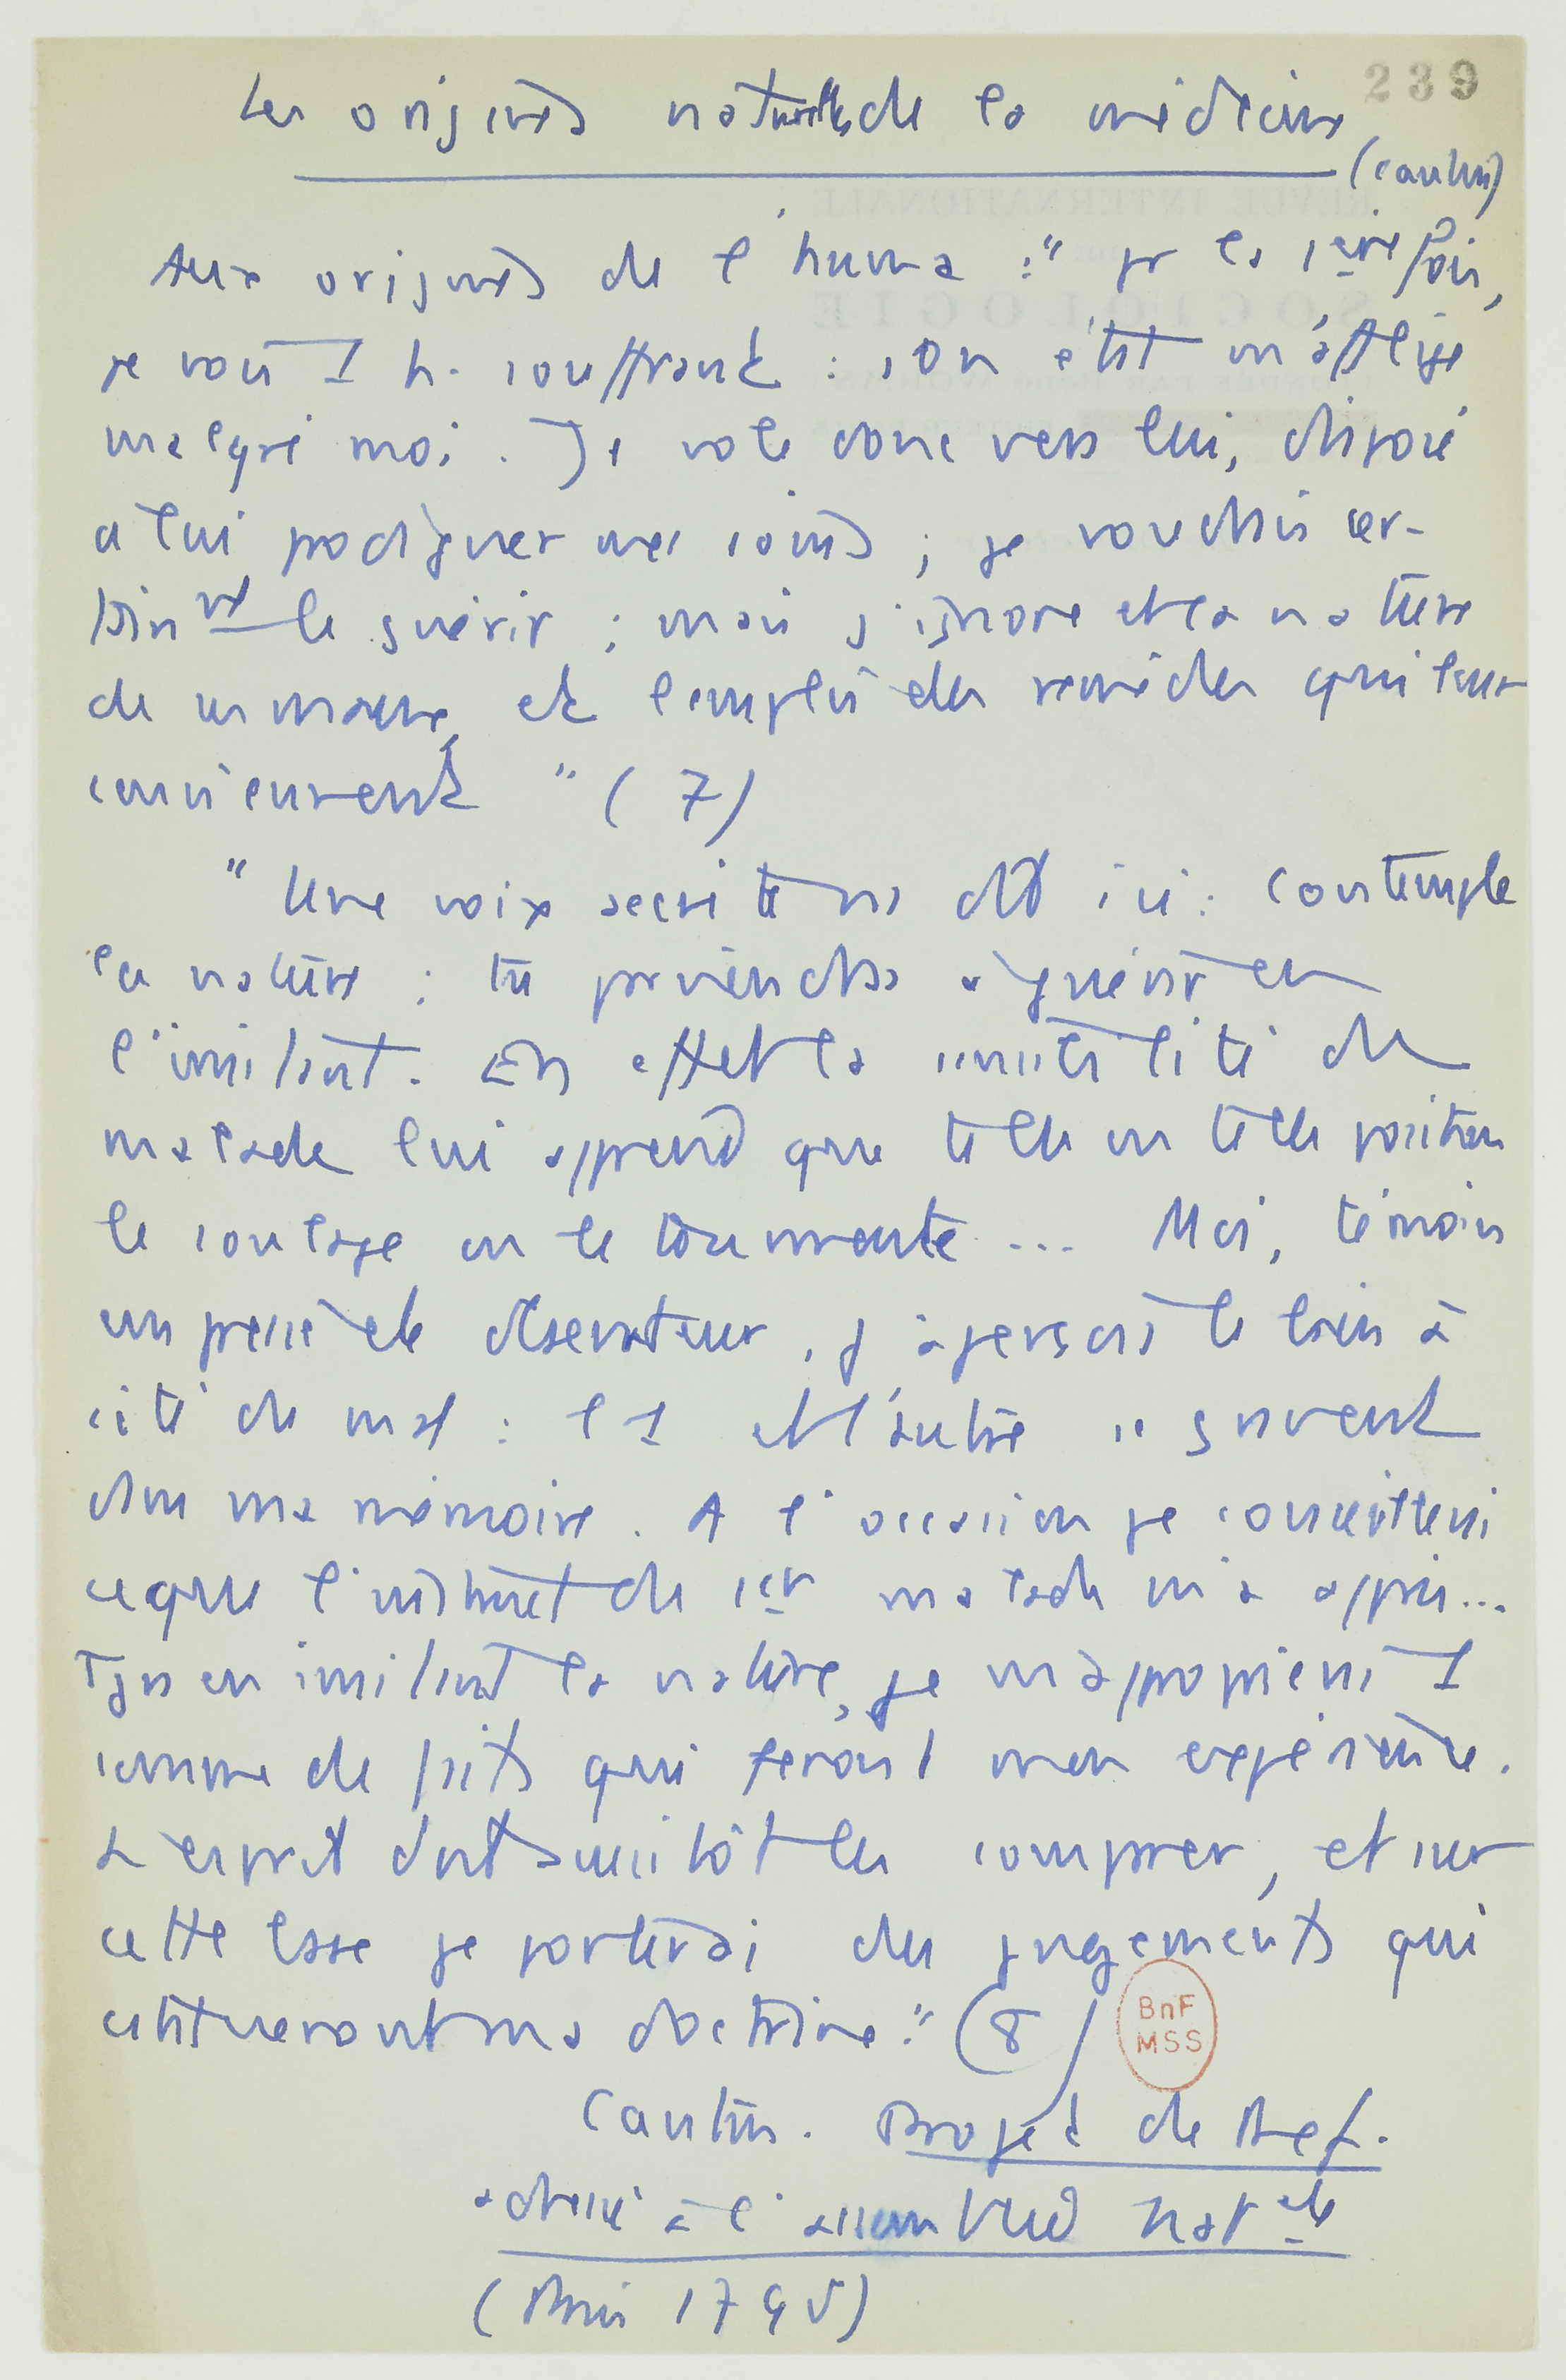 239
Les origines naturelles de la médecine
(Cantin)
Aux origines de l'huma : " pr la 1ère fois,
je vois 1 h. souffrant : son état m'afflige
malgré moi. Je vole donc vers lui, disposé
a lui prodiguer mes soins ; je voudrais cer-
tainnt le guérir ; mais j'ignore et la nature
de ses maux, et l'emploi des remèdes qui leur
conviennent " (7)
" Une voix secrète ns dit ici : Contemple
la nature : tu parviendras à guérir en
l'imitant. En effet la sensibilité du
malade lui apprend que telle ou telle position
le soulage ou le tourmente ... Moi, témoin
empressé et observateur, j'aperçois le bien à
côté du mal : l'1 et l'autre se gravent
dans ma mémoire. A l'occasion je
ce que l'instinct du 1er malade m'a appris...
Tjrs en imitant la nature, je m'approprierai 1
somme de faits qui feront mon expérience.
L'esprit doit aussitôt les comparer, et sur
cette base je porterai des jugements qui
constitueront ma doctrine." (8)
BnF
MSS
Cantin. Projet de Ref.
adressé à l'assemblée Natale
(Paris 1790)